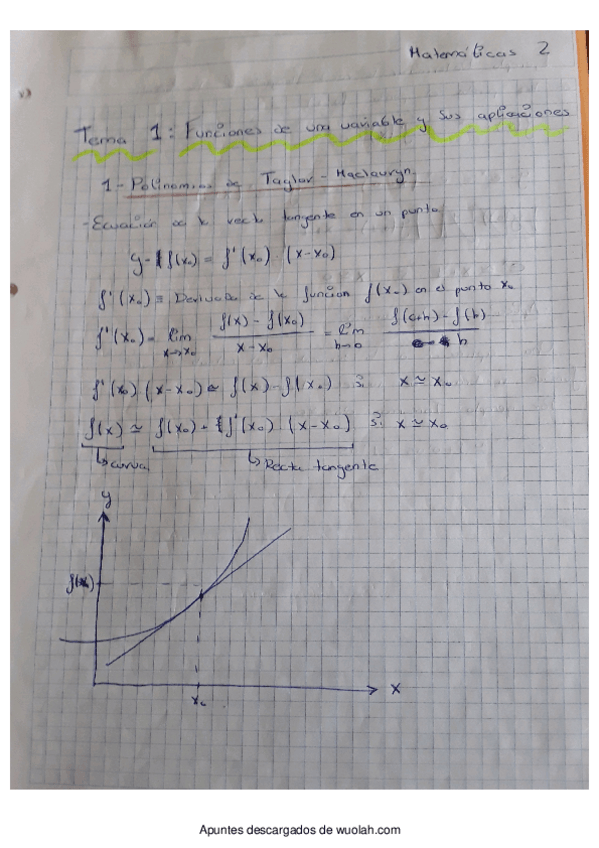 Matemáticas 2
Tema 1: Funciones de una variable y sus aplicaciones
1- Polinomios de Taylor - Maclauryn.
- Ecuación de la recta tangente en un punto
y - f(x₀) = f'(x₀) · (x-x₀)
f'(x₀) ≡ Derivada de la función f(x) en el punto x₀
f'(x₀) = lim x→x₀ (f(x) - f(x₀))/(x-x₀) = lim h→0 (f(c+h) - f(h))/h
f'(x₀) (x-x₀) ≃ f(x) - f(x₀) si x ≃ x₀
f(x) ≃ f(x₀) + f'(x₀) (x-x₀) si x ≃ x₀
↳ curva ↳ Recta tangente
y
f(x₀)
x
x₀
Apuntes descargados de wuolah.com